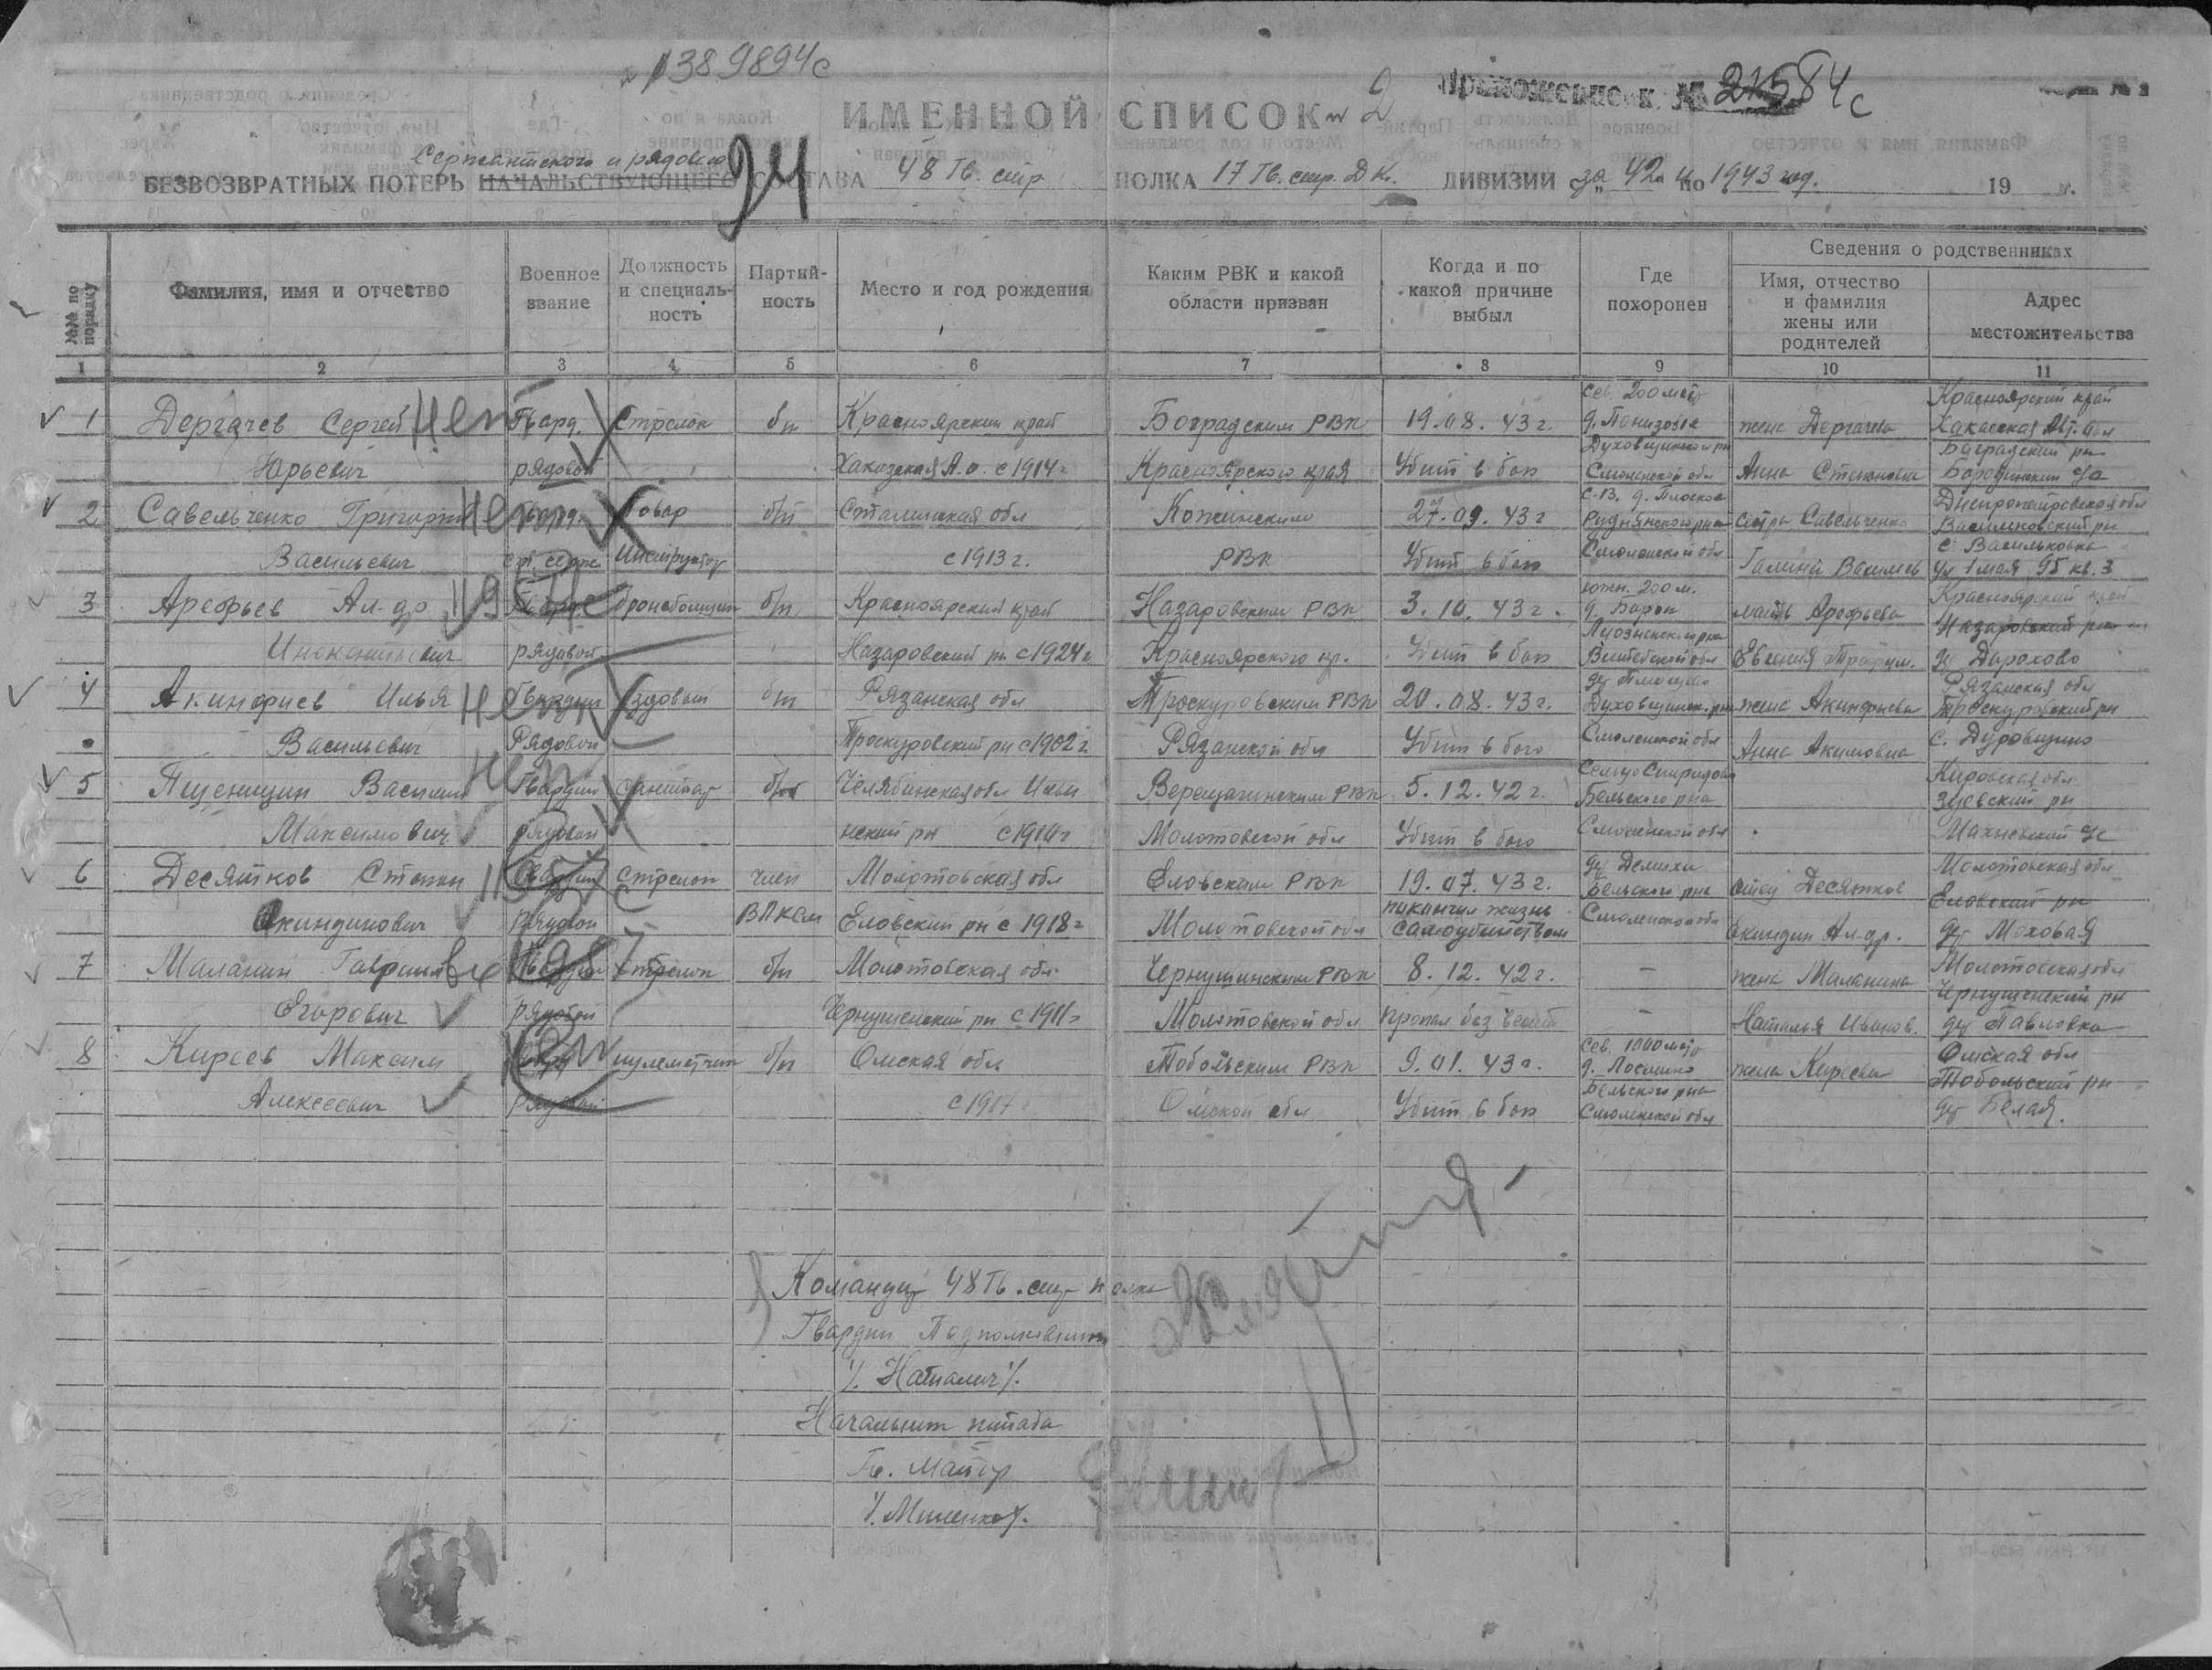 389894с
Приложение к № 21584с
ИМЕННОЙ СПИСОК № 2
Сержантского и рядового
24
БЕЗВОЗВРАТНЫХ ПОТЕРЬ НАЧАЛЬСТВУЮЩЕГО СОСТАВА 48 Гв. стр. ПОЛКА 17 Гв. стр. Д Кр. ДИВИЗИИ за 42 и по 1943 год. 19 г.
№№ по порядку
Фамилия, имя и отчество
Военное звание
Должность и специаль-ность
Партий-ность
Место и год рождения
Каким РВК и какой области призван
Когда и по какой причине выбыл
Где похоронен
Сведения о родственниках
Имя, отчество и фамилия жены или родителей
Адрес местожительства
1 2 3 4 5 6 7 8 9 10 11
сев. 200 мет Красноярский край
1 Дергачев Сергей нет Гвард. Стрелок бп Красноярский край Боградским РВК 19.08.43 г. д. Панизовье жена Дергачева Хакасская Авт. обл
Духовщинского рн Боградский рн
Юрьевич рядовой Хакасская А.о. с 1914 г Красноярского края Убит в бою Смоленской обл Анна Степановна Бородинский с/с
С.В. д. Плоское Днепропетровская обл
2 Савельченко Григорий нет Гвард. Повар б/п Сталинская обл 27.09.43 г Руднянского р-на сестра Савельченко Васильковский рн
Смоленской обл с. Васильковка
Васильевич ст. серж. Инструктор с 1913 г. РВК Убит в бою Галина Васильев ул 1 мая 95 кв. 3
южн. 200 м. Красноярский край
3 Арефьев Ал-др Гвард. бронебойщик б/п Красноярский край Назаровским РВК 3.10.43 г. д. Барон мать Арефьева Назаровский рн
Лиозненского рна
Инокентьевич рядовой Назаровский рн с 1924 г Красноярского кр. Убит в бою Витебской обл Евгения д. Дорохово
Рязанская обл
4 Акинфиев Илья нет Гвардии Ездовый бп Рязанская обл Проскуровским РВК 20.08.43 г. Духовщинск. рн жена Акинфиева Проскуровский рн
Васильевич Рядовой Проскуровский рн с 1902 г Рязанской обл Убит в бою Смоленской обл Анна Акимовна с. Дуровщино
Сельцо Спиридово Кировская обл
5 Пшеницин Василий нет Гвардии санитар б/п Челябинская обл Верещагинским РВК 5.12.42 г. Бельского рна Зуевский рн
Максимович рядовой нский рн с 1914 г Молотовской обл Убит в бою Смоленской обл с/с
д. Демихи Молотовская обл
6 Десятков Степан Гвардии стрелок член Молотовская обл Еловским РВК 19.07.43 г. Бельского рна отец Десятков Еловский рн
покончил жизнь
Акиндинович Рядовой ВЛКСМ Еловский рн с 1918 г Молотовской обл самоубийством Смоленской обл Акиндин Ал-др. д. Моховая
7 Маланин Гаврил Гвардии Стрелок б/п Молотовская обл Чернушинским РВК 8.12.42 г. — жена Маланина Молотовская обл
Чернушенский рн
Егорович рядовой Чернушенский рн с 1911 г Молотовской обл Пропал без вести — Наталья Иванов. д. Павловка
сев. 1000 мет Омская обл
8 Киреев Максим Гвард пулеметчик б/п Омская обл Тобольским РВК 9.01.43 г. д. Лосьмино жена Киреева Тобольский рн
Бельского рна
Алексеевич рядовой с 1917 Омской обл Убит в бою Смоленской обл д. Белая.
Командир 48 Гв. стр полка
Гвардии Подполковник
/. Наталич /.
Начальник штаба
Гв. Майор
/. Миленко /.